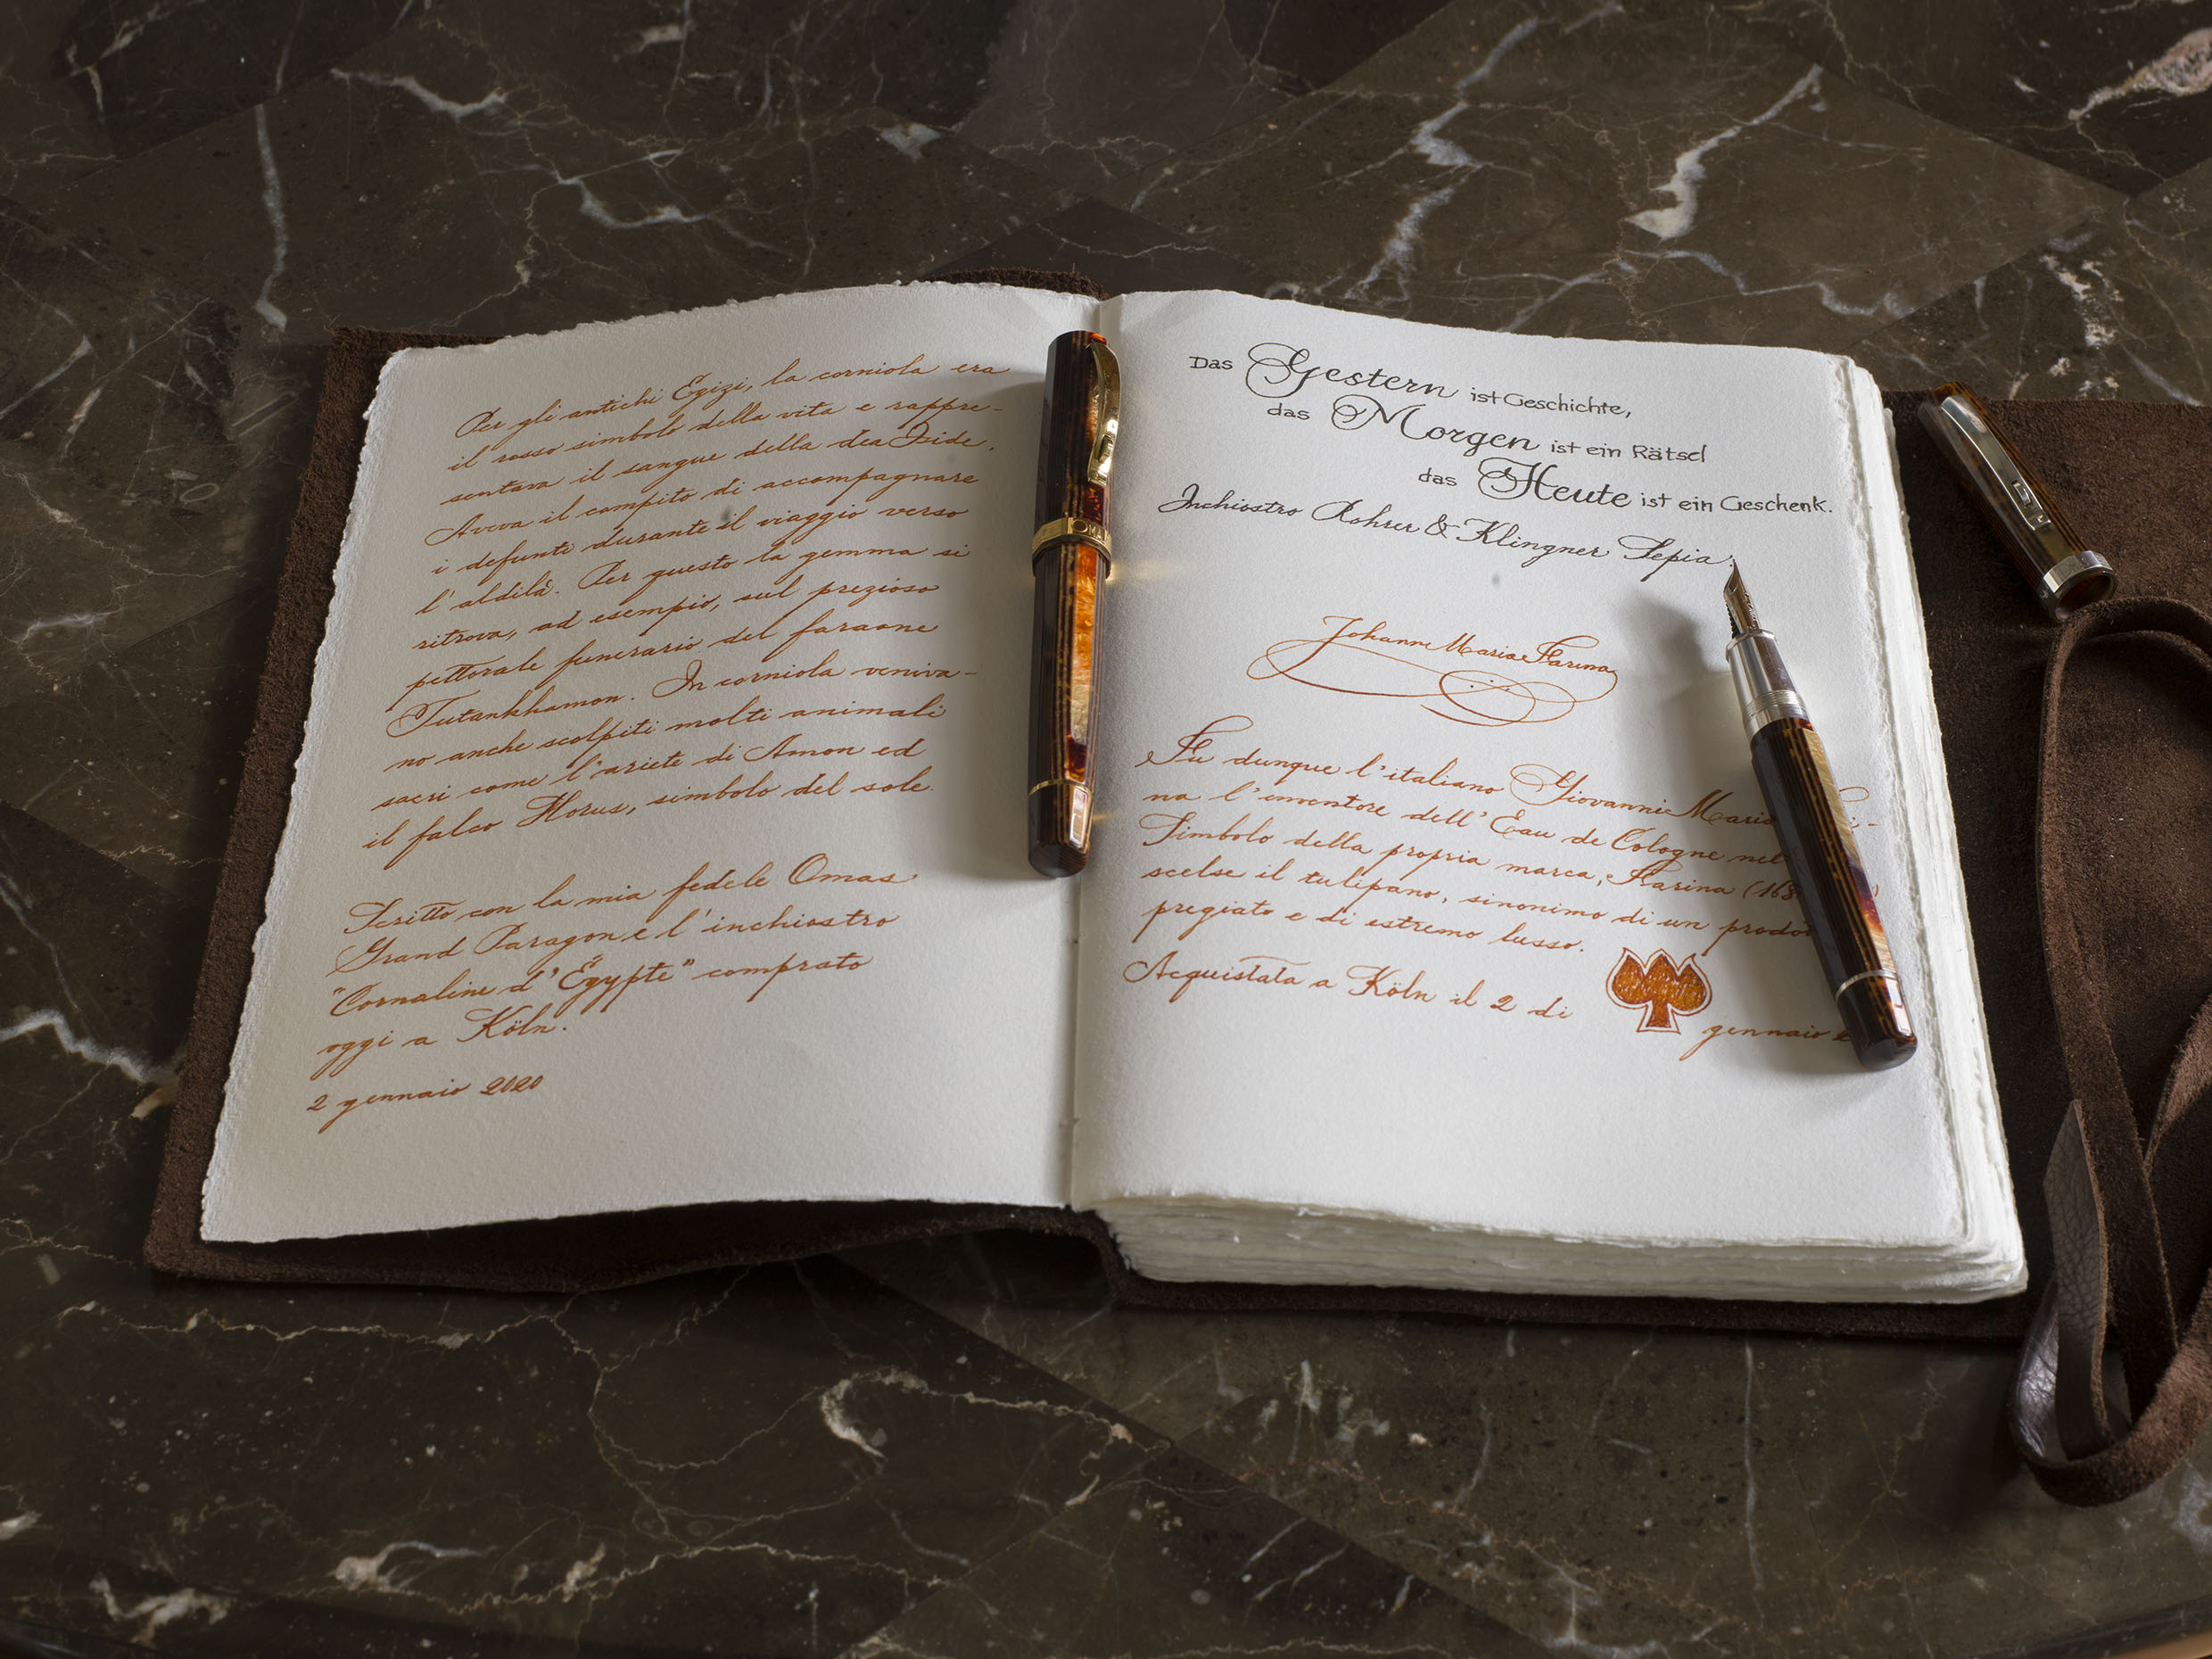 Per gli antichi Egizi, la corniola era
il rosso simbolo della vita e rappre-
sentava il sangue della dea Iside.
Aveva il compito di accompagnare
i defunti durante il viaggio verso
l'aldilà. Per questo la gemma si
ritrova, ad esempio, sul prezioso
pettorale funerario del faraone
Tutankhamon. In corniola veniva-
no anche scolpiti molti animali
sacri come l'ariete di Amon ed
il falco Horus, simbolo del sole.
Scritto con la mia fedele Omas
Grand Paragon e l'inchiostro
"Cornaline d'Égypte" comprato
oggi a Köln.
2 gennaio 2020
OMA
Das Gestern ist Geschichte,
das Morgen ist ein Rätsel
das Heute ist ein Geschenk.
Inchiostro Rohrer & Klingner Sepia.
Johann Maria Farina
Fu dunque l'italiano Giovanni Maria
na l'inventore dell'Eau de Cologne nel
Simbolo della propria marca, Farina (168
scelse il tulipano, sinonimo di un prodot
pregiato e di estremo lusso.
Acquistata a Köln il 2 di gennaio 2